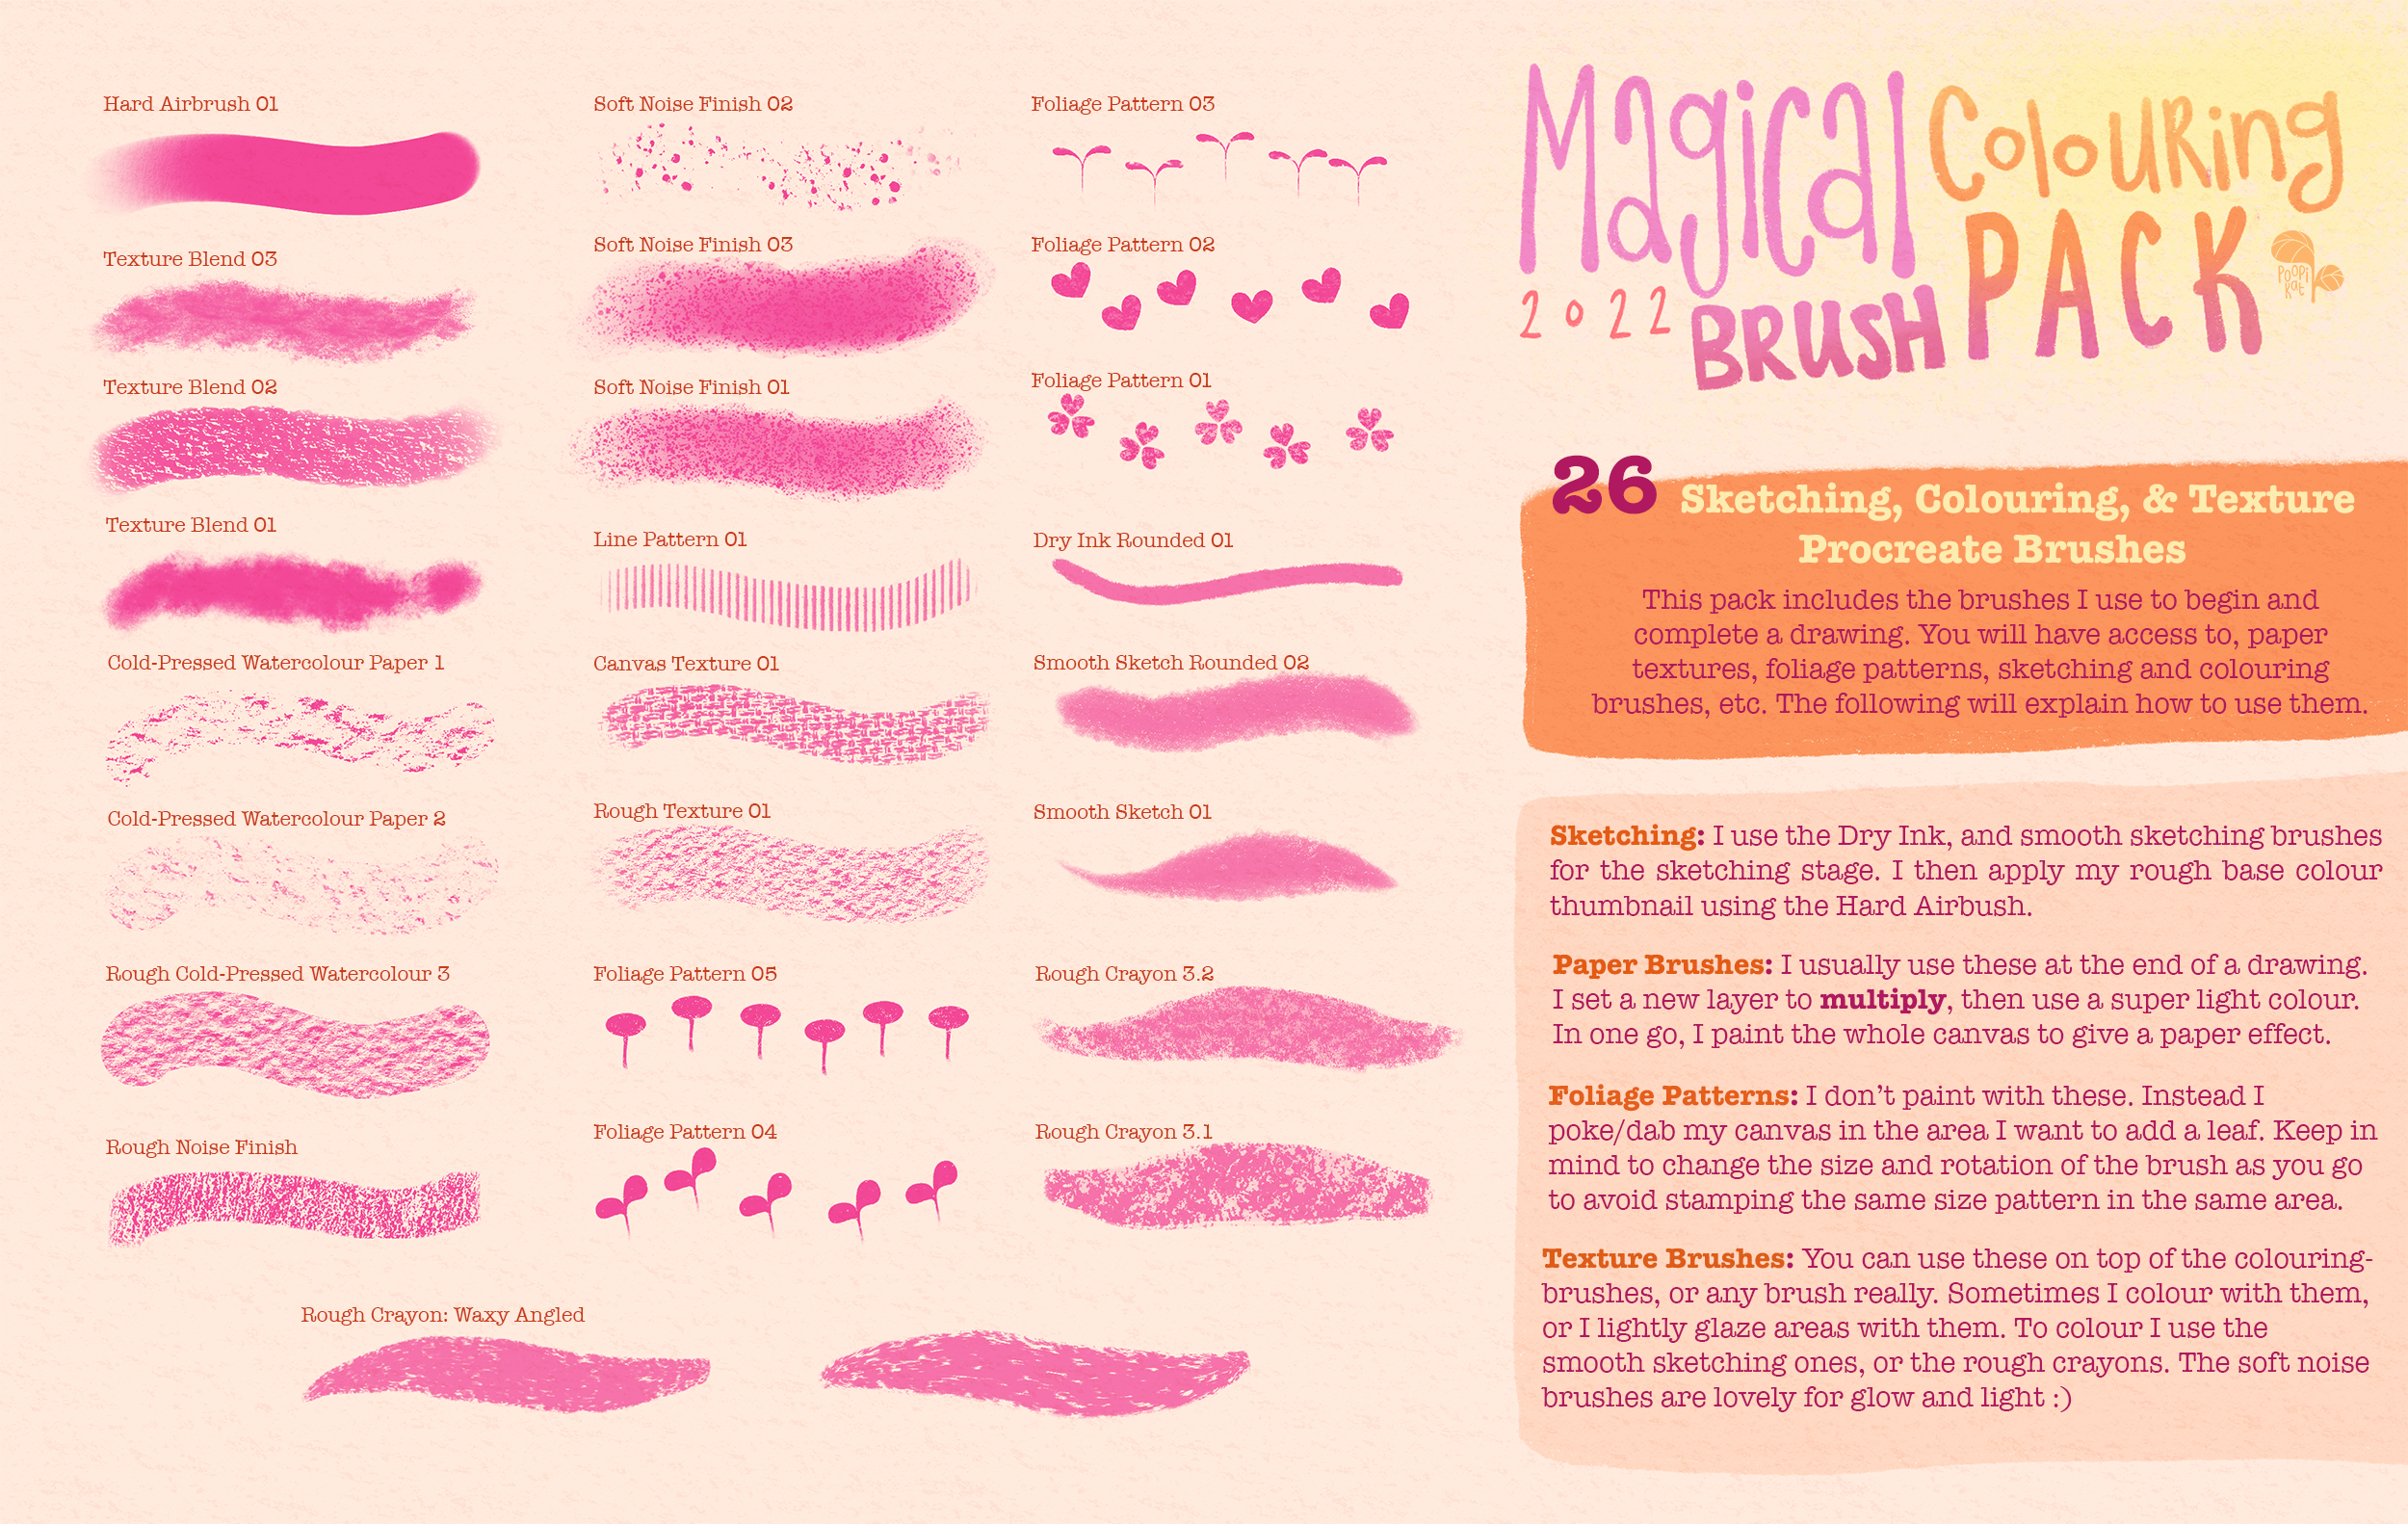 Hard Airbrush 01
Texture Blend 03
Texture Blend 02
Texture Blend 01
Cold-Pressed Watercolour Paper 1
Cold-Pressed Watercolour Paper 2
Rough Cold-Pressed Watercolour 3
Rough Noise Finish
Soft Noise Finish 02
Soft Noise Finish 03
Soft Noise Finish 01
Line Pattern 01
Canvas Texture 01
Rough Texture 01
Foliage Pattern 05
Foliage Pattern 04
Foliage Pattern 03
Foliage Pattern 02
Foliage Pattern 01
Dry Ink Rounded 01
Smooth Sketch Rounded 02
Smooth Sketch 01
Rough Crayon 3.2
Rough Crayon 3.1
Rough Crayon: Waxy Angled
Magical Colouring
2022 BRUSH PACK
POOPi
Kat
26 Sketching, Colouring, & Texture
Procreate Brushes
This pack includes the brushes I use to begin and
complete a drawing. You will have access to, paper
textures, foliage patterns, sketching and colouring
brushes, etc. The following will explain how to use them.
Sketching: I use the Dry Ink, and smooth sketching brushes
for the sketching stage. I then apply my rough base colour
thumbnail using the Hard Airbush.
Paper Brushes: I usually use these at the end of a drawing.
I set a new layer to multiply, then use a super light colour.
In one go, I paint the whole canvas to give a paper effect.
Foliage Patterns: I don't paint with these. Instead I
poke/dab my canvas in the area I want to add a leaf. Keep in
mind to change the size and rotation of the brush as you go
to avoid stamping the same size pattern in the same area.
Texture Brushes: You can use these on top of the colouring-
brushes, or any brush really. Sometimes I colour with them,
or I lightly glaze areas with them. To colour I use the
smooth sketching ones, or the rough crayons. The soft noise
brushes are lovely for glow and light :)